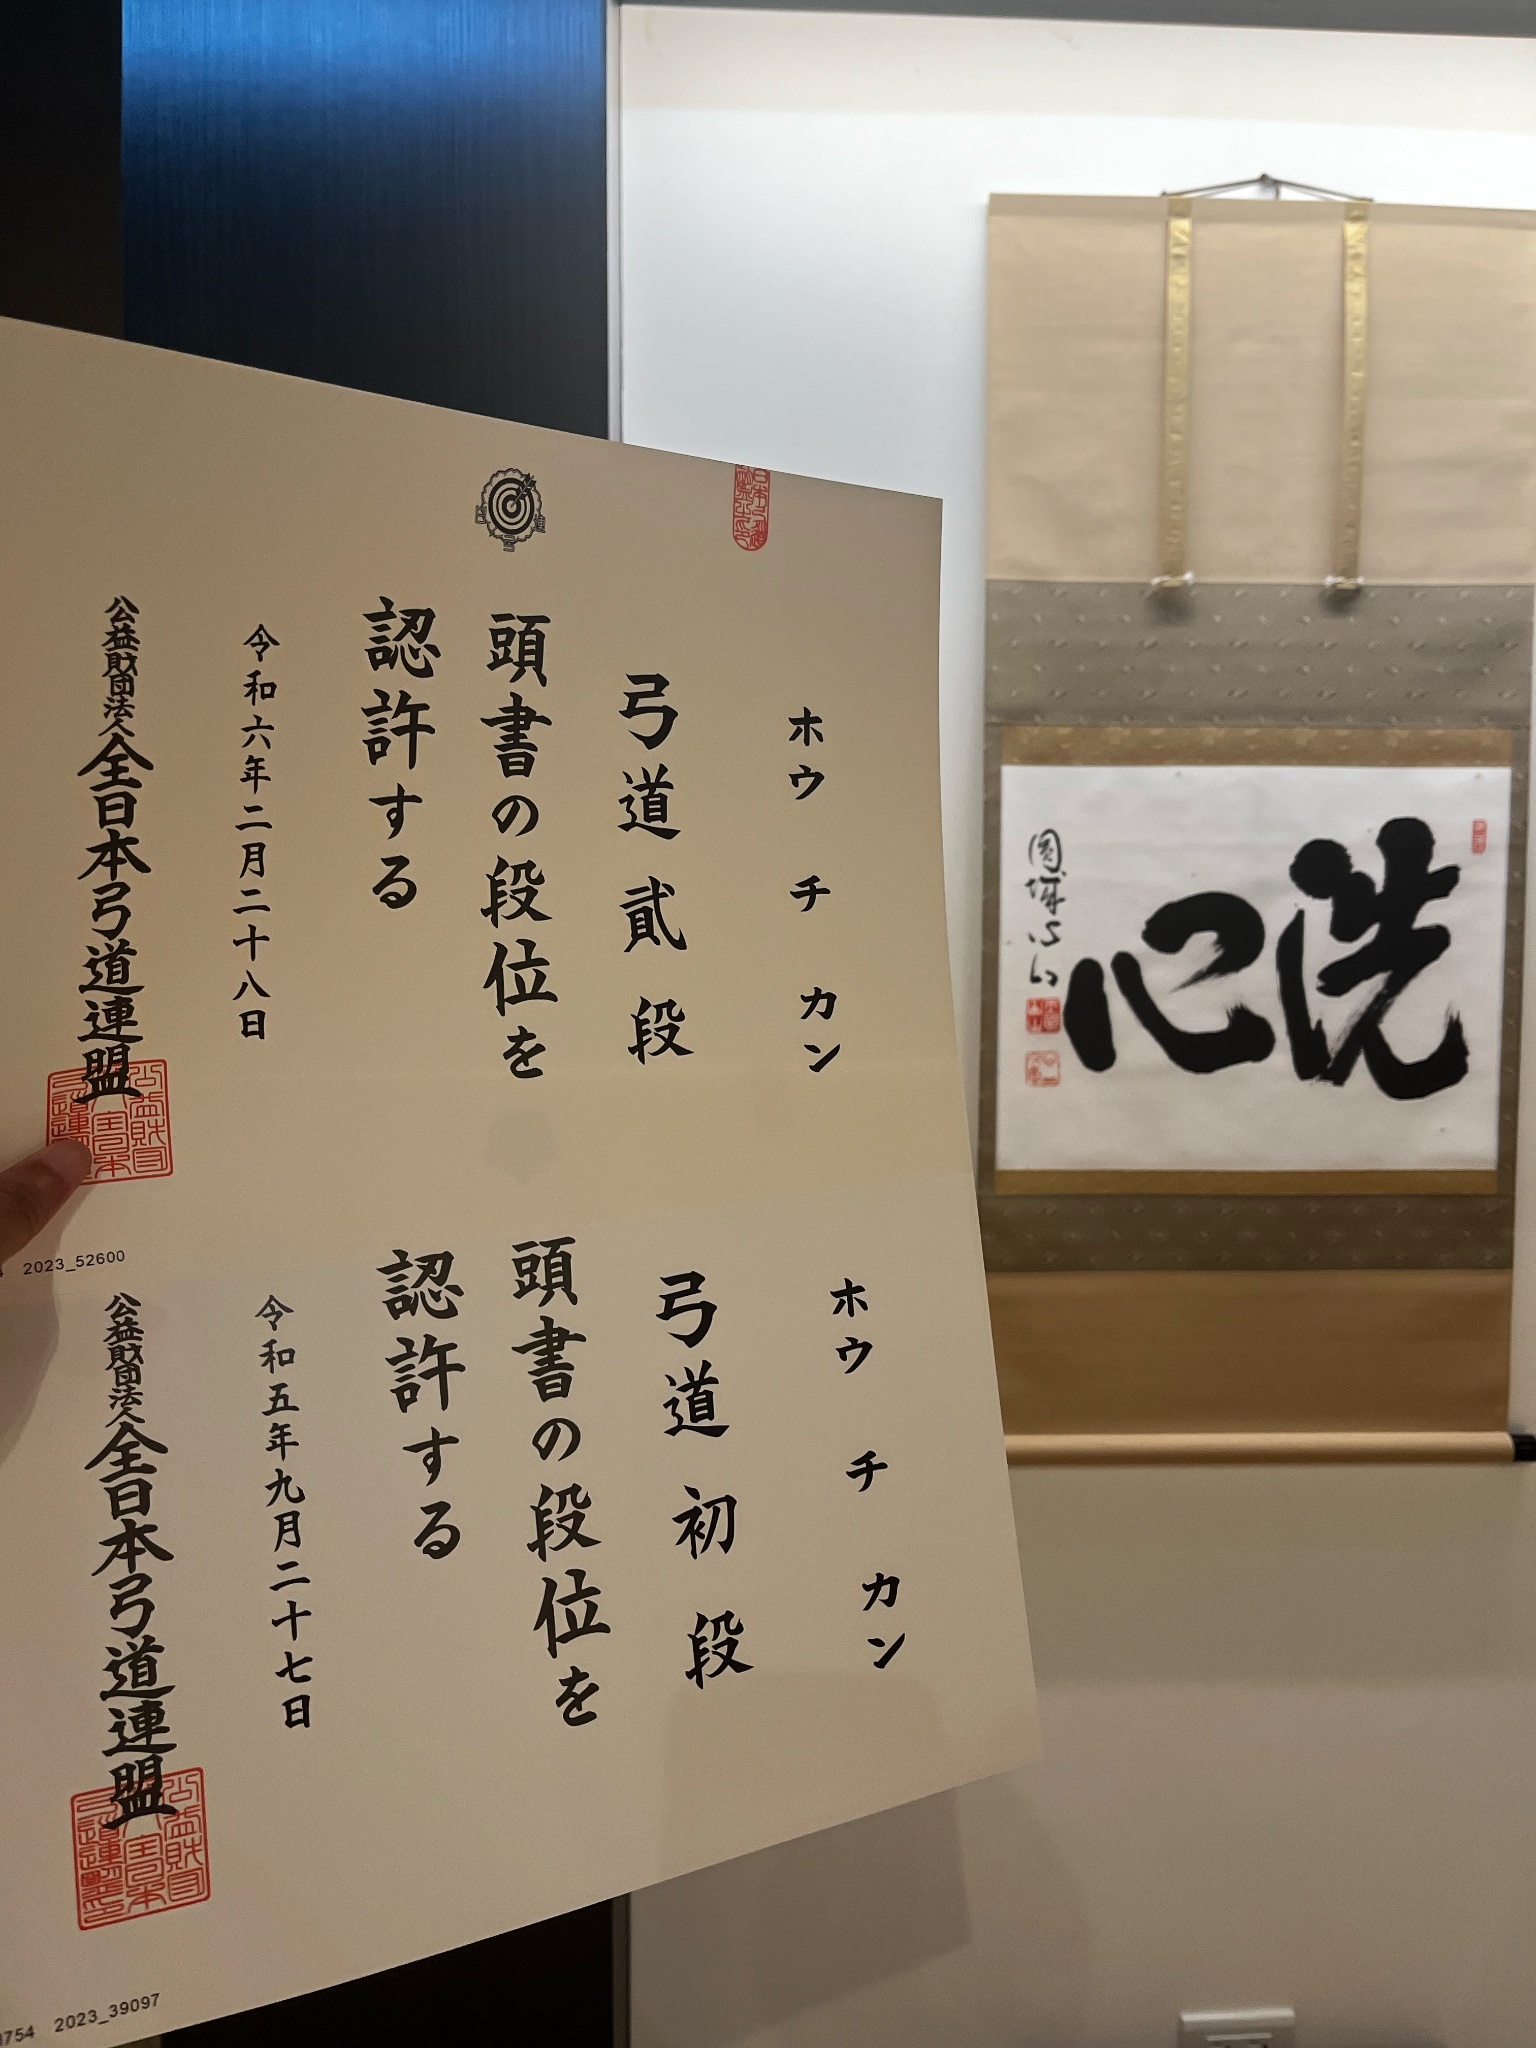 ホウ チ カン
弓道 貳 段
頭書の段位を
認許する
令和六年二月二十八日
公益財団法人全日本弓道連盟
2023_52600
ホウ チ カン
弓道 初 段
頭書の段位を
認許する
令和五年九月二十七日
公益財団法人全日本弓道連盟
754 2023_39097
洗心